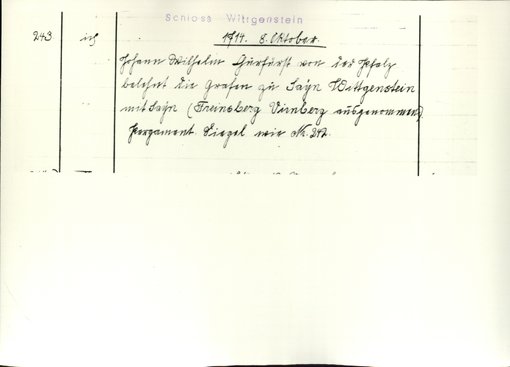 Schloss Wittgenstein
243 ich 1714. 8. Oktober.
Johann Wilhelm Curfürst von der Pfalz
belehnt die Grafen zu Sayn Wittgenstein
mit Sayn (Freusberg Virnberg ausgenommen)
Pergament Siegel wie Nr. 242.